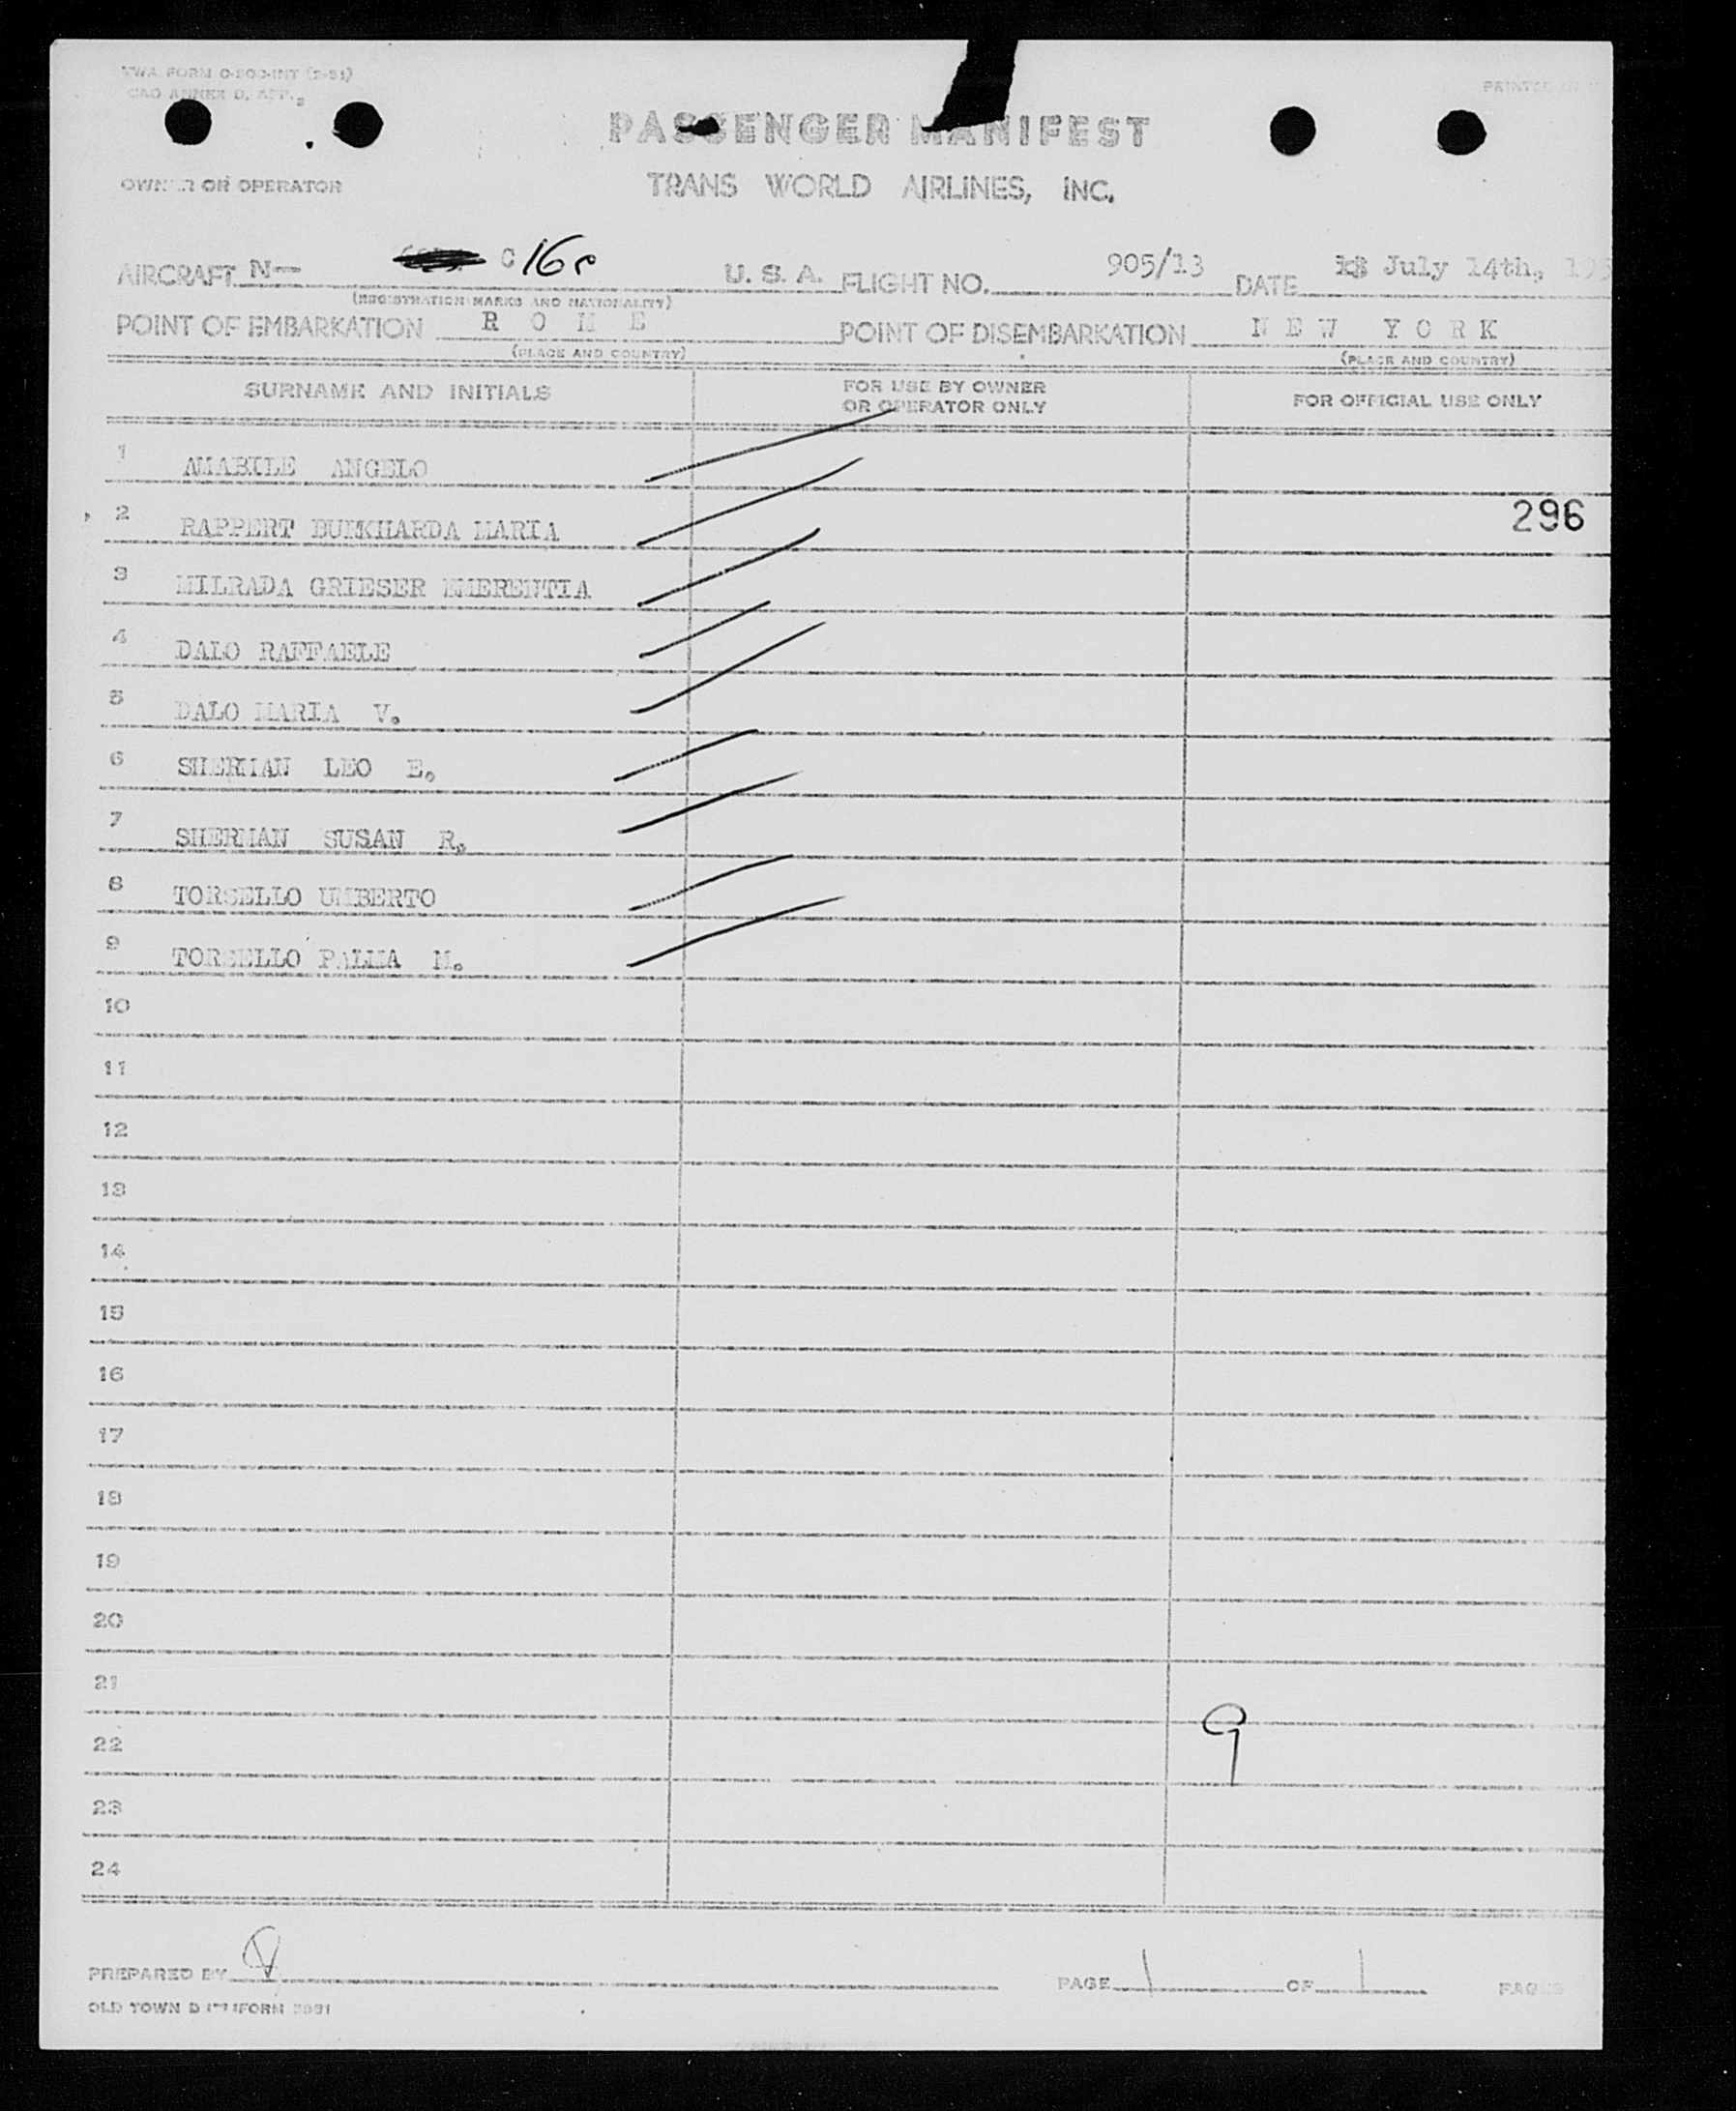 TWA FORM
PRINTED IN
PASSENGER MANIFEST
OWNER OR OPERATOR
TRANS WORLD AIRLINES, INC.
AIRCRAFT N- C U. S. A. FLIGHT NO. 905/13 DATE July 14th, 195
(REGISTRATION MARKS AND NATIONALITY)
POINT OF EMBARKATION R O M E POINT OF DISEMBARKATION N E W Y O R K
(PLACE AND COUNTRY) (PLACE AND COUNTRY)
SURNAME AND INITIALS FOR USE BY OWNER OR OPERATOR ONLY FOR OFFICIAL USE ONLY
1 AMABILE ANGELO
2 RAPPERT BURKHARDA MARIA 296
3 MILRADA GRIESER EMERENTIA
4 DALO RAFFAELE
5 DALO MARIA V.
6 SHERMAN LEO E.
7 SHERMAN SUSAN R.
8 TORSELLO UMBERTO
9 TORSELLO PALMA M.
10
11
12
13
14
15
16
17
18
19
20
21
22 9
23
24
PREPARED BY PAGE 1 OF 1 PAGES
OLD TOWN